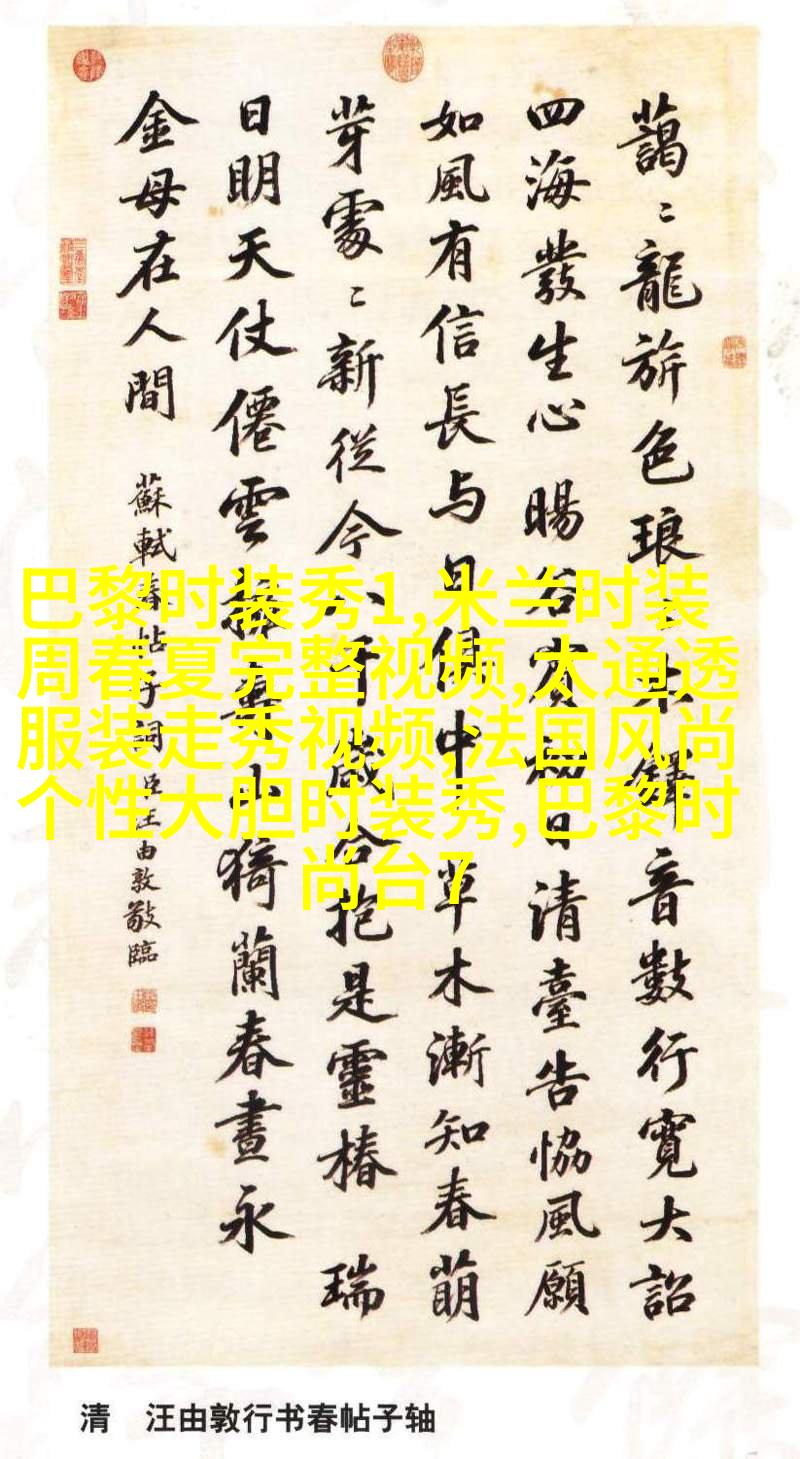 藹〻龍旂色琅〻木鐸音數行寬大詔
四海發生心 暘谷賓初日清臺告協風願
如風有信長与日俱中 草木漸知春萌
芽處〻新從今八千歲合抱是靈椿 瑞
日明天仗僊雲擁壽山猗蘭春晝永
金母在人間 蘇軾春帖子詞 臣汪由敦敬臨
巴黎时装秀1,米兰时装
周春夏完整视频,太通透
服装走秀视频,法国风尚
个性大胆时装秀,巴黎时
尚台7
清 汪由敦行书春帖子轴